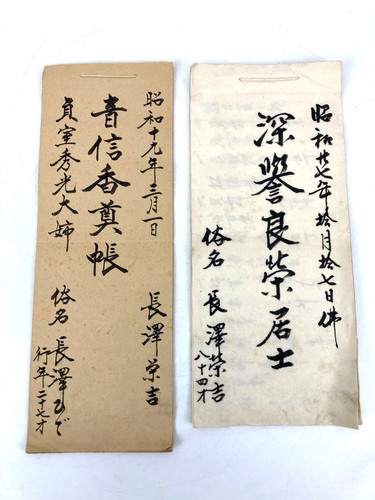 昭和廿七年拾月拾七日佛
深譽良榮居士
俗名 長澤榮吉
八十四才
昭和十九年三月一日
長澤栄吉
音信香奠帳
貞室秀光大姉
俗名 長澤ひで
行年二十七才